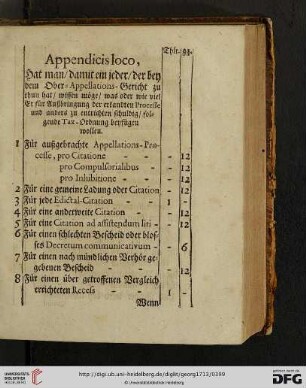 Thlr. gg.
Appendicis loco,
Hat man / damit ein jeder / der bey
dem Ober-Appellations-Gericht zu
thun hat / wissen möge / was oder wie viel
Er für Außbringung der erkandten Processe
und anders zu entrichten schuldig / fol-
gende Tax-Ordnung beyfügen
wollen.
1 Für außgebrachte Appellations-Pro-
cesse, pro Citatione - - 12
pro Compulsorialibus - - 12
pro Inhibitione - - 12
2 Für eine gemeine Ladung oder Citation - 12
3 Für jede Edictal-Citation - 1 -
4 Für eine anderweite Citation - - 12
5 Für eine Citation ad assistendum liti - - 12
6 Für einen schlechten Bescheid oder blos-
ses Decretum communicativum - - 6
7 Für einen nach mündlichen Verhör ge-
gebenen Bescheid - - 12
8 Für einen über getroffenen Vergleich
errichteten Recess - 1 -
Wenn
UNIVERSITÄTS-
BIBLIOTHEK
HEIDELBERG
http://digi.ub.uni-heidelberg.de/diglit/georg1713/0399
© Universitätsbibliothek Heidelberg